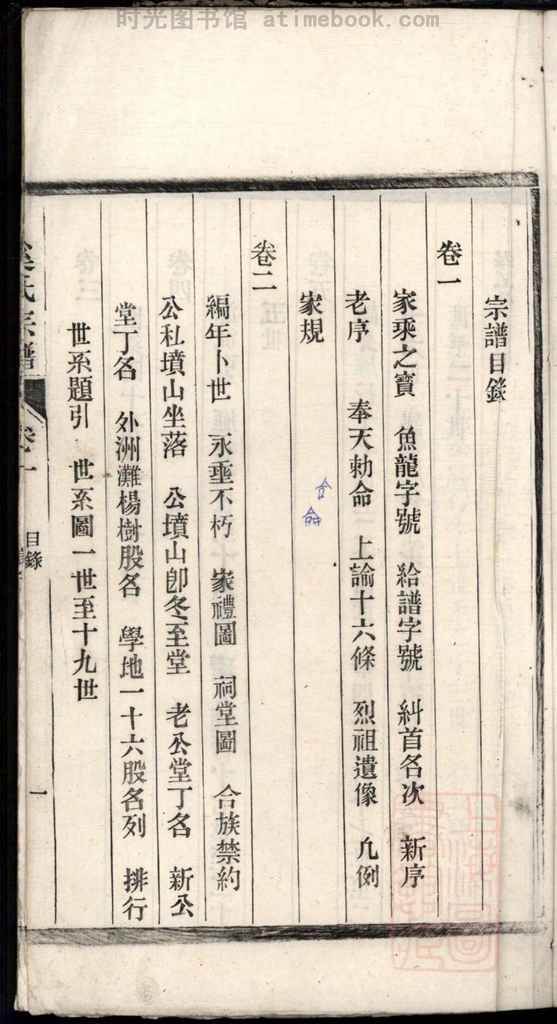 时光图书馆 atimebook.com
宗譜目錄
卷一
家乘之寶 魚龍字號 給譜字號 糾首名次 新序
老序 奉天勅命 上諭十六條 烈祖遺像 凢例
家規
卷二
編年卜世 永埀不朽 家禮圖 祠堂圖 合族禁約
公私墳山坐落 公墳山卽冬至堂 老公堂丁名 新公
堂丁名 外洲灘楊樹股名 學地一十六股名列 排行
世系題引 世系圖一世至十九世
氏宗譜
目錄
一